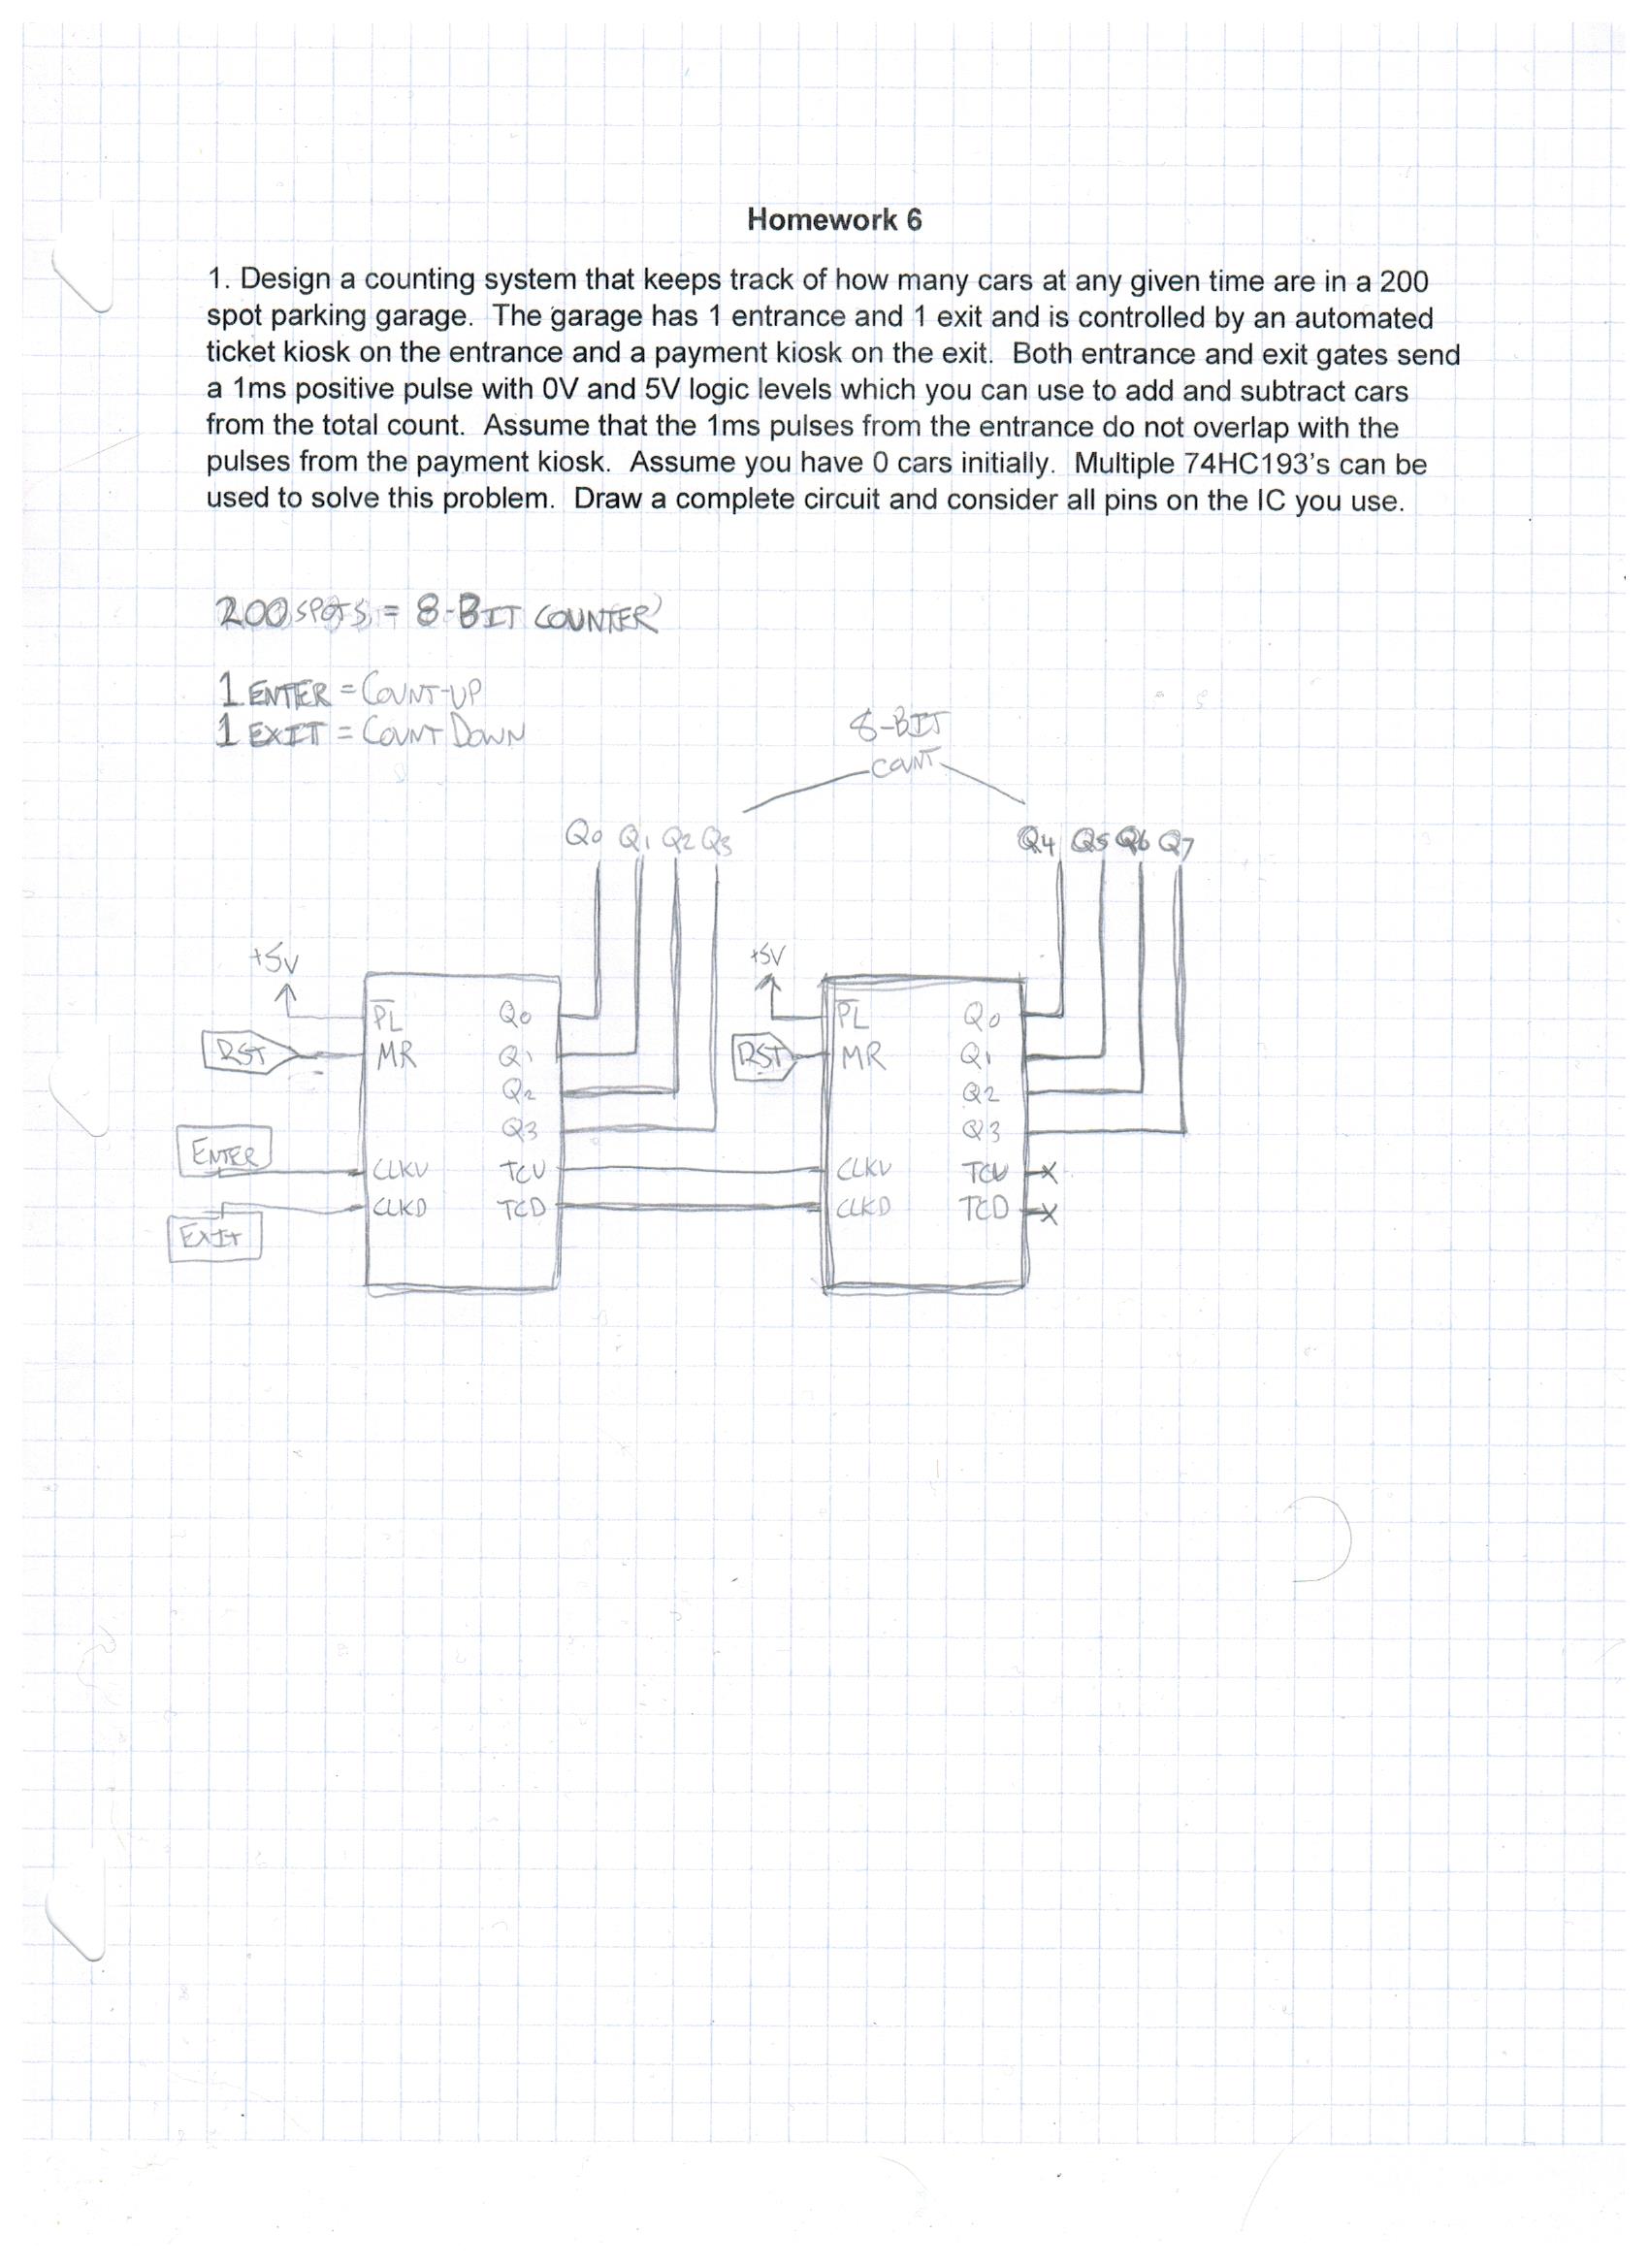 Homework 6
1. Design a counting system that keeps track of how many cars at any given time are in a 200
spot parking garage. The garage has 1 entrance and 1 exit and is controlled by an automated
ticket kiosk on the entrance and a payment kiosk on the exit. Both entrance and exit gates send
a 1ms positive pulse with 0V and 5V logic levels which you can use to add and subtract cars
from the total count. Assume that the 1ms pulses from the entrance do not overlap with the
pulses from the payment kiosk. Assume you have 0 cars initially. Multiple 74HC193's can be
used to solve this problem. Draw a complete circuit and consider all pins on the IC you use.
200 SPOTS = 8-BIT COUNTER
1 ENTER = COUNT-UP
1 EXIT = COUNT DOWN
8-BIT
COUNT
Q0 Q1 Q2 Q3 Q4 Q5 Q6 Q7
+5V +5V
PL Q0 PL Q0
RST MR Q1 RST MR Q1
Q2 Q2
Q3 Q3
ENTER CLKU TCU CLKU TCU X
EXIT CLKD TCD CLKD TCD X